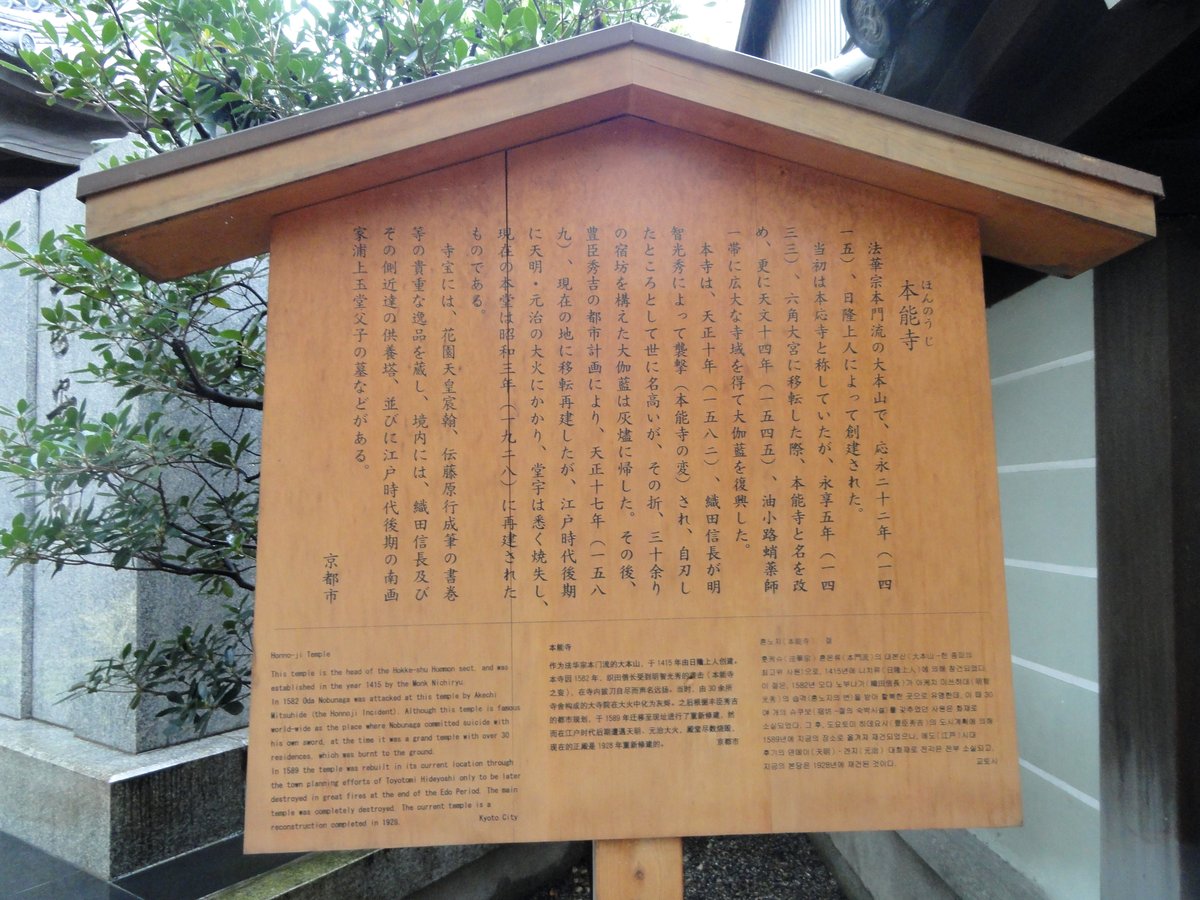 ほんのうじ
本能寺
法華宗本門流の大本山で、応永二十二年（一四
一五）、日隆上人によって創建された。
当初は本応寺と称していたが、永享五年（一四
三三）、六角大宮に移転した際、本能寺と名を改
め、更に天文十四年（一五四五）、油小路蛸薬師
一帯に広大な寺域を得て大伽藍を復興した。
本寺は、天正十年（一五八二）、織田信長が明
智光秀によって襲撃（本能寺の変）され、自刃し
たところとして世に名高いが、その折、三十余り
の宿坊を構えた大伽藍は灰燼に帰した。その後、
豊臣秀吉の都市計画により、天正十七年（一五八
九）、現在の地に移転再建したが、江戸時代後期
に天明・元治の大火にかかり、堂宇は悉く焼失し、
現在の本堂は昭和三年（一九二八）に再建された
ものである。
寺宝には、花園天皇宸翰、伝藤原行成筆の書巻
等の貴重な逸品を蔵し、境内には、織田信長及び
その側近達の供養塔、並びに江戸時代後期の南画
家浦上玉堂父子の墓などがある。
京都市
Honno-ji Temple
This temple is the head of the Hokke-shu Honmon sect, and was
established in the year 1415 by the Monk Nichiryu.
In 1582 Oda Nobunaga was attacked at this temple by Akechi
Mitsuhide (the Honnoji Incident). Although this temple is famous
world-wide as the place where Nobunaga committed suicide with
his own sword, at the time it was a grand temple with over 30
residences, which was burnt to the ground.
In 1589 the temple was rebuilt in its current location through
the town planning efforts of Toyotomi Hideyoshi only to be later
destroyed in great fires at the end of the Edo Period. The main
temple was completely destroyed. The current temple is a
reconstruction completed in 1928.
Kyoto City
本能寺
作为法华宗本门流的大本山，于1415年由日隆上人创建。
本寺因1582年，织田信长受到明智光秀的袭击（本能寺
之变），在寺内拔刀自尽而声名远扬。当时，由30余所
寺舍构成的大寺院在大火中化为灰烬。之后根据丰臣秀吉
的都市规划，于1589年迁移至现址进行了重新修建，然
而在江户时代后期遭遇天明、元治大火，殿堂尽数烧毁，
现在的正殿是1928年重新修建的。
京都市
혼노지（本能寺） 절
홋케슈（法華宗）혼몬류（本門流）의 대본산（大本山→한 종파의
최고위 사원）으로, 1415년에 니치류（日隆上人）에 의해 창건되었다.
이 절은, 1582년 오다 노부나가（織田信長）가 아케치 미쓰히데（明智
光秀）의 습격（혼노지의 변）을 받아 할복한 곳으로 유명한데, 이 때 30
여 개의 슈쿠보（재방→절의 숙박시설）를 갖추었던 사원은 화재로
소실되었다. 그 후, 도요토미 히데요시（豊臣秀吉）의 도시계획에 의해
1589년에 지금의 장소로 옮겨져 재건되었으나, 에도（江戸）시대
후기의 덴메이（天明）・겐지（元治） 대화재로 전각은 전부 소실되고,
지금의 본당은 1928년에 재건된 것이다.
교토시